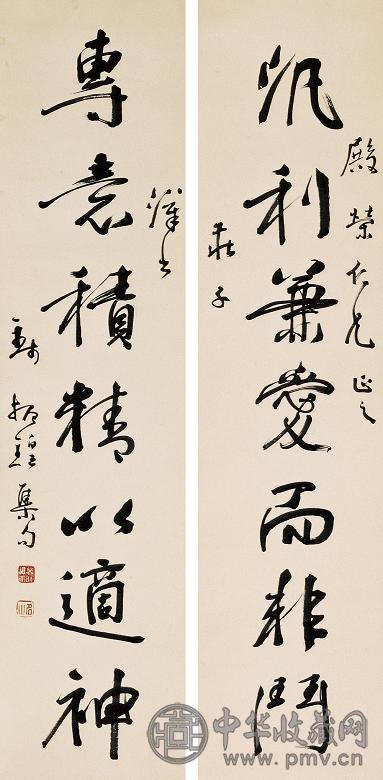 汎利兼愛而非鬥
殿榮仁兄正之
莊子
專意積精以適神
漢書
集句
中华收藏网
www.pmv.cn